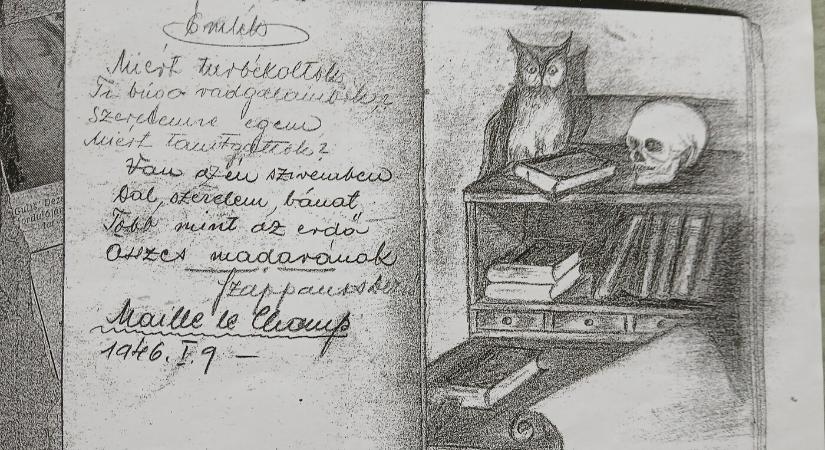 Emlék
Miért turbékoltok
Ti búgó vadgalambok?
Szerelemre engem
Miért tanítgattok?
Van az én szivemben
Dal, szerelem, bánat,
Több mint az erdő
Összes madarának
Maille le Champ
1946. I. 9 —